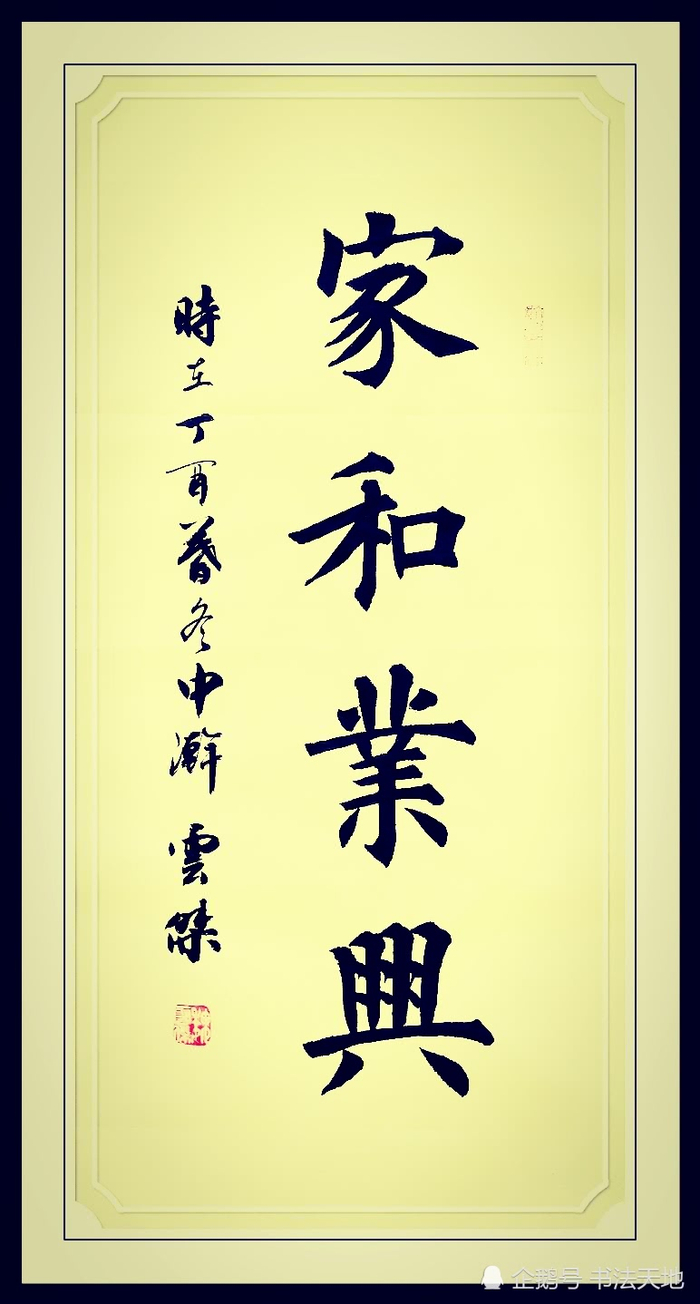 家和業興
時在丁酉暮冬中澣 雲傑
企鹅号 书法天地